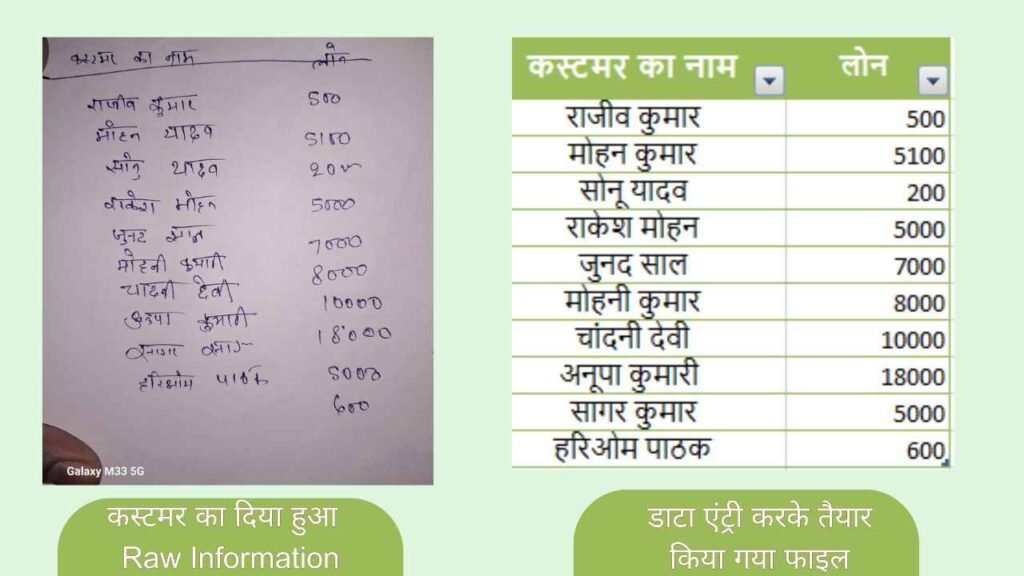 कस्टमर का नाम लोन
राजीव कुमार 500
मोहन यादव 5100
सोनु यादव 200
राकेश मोहन 5000
जुनद 7000
मोहनी कुमारी 8000
चादनी देवी 10000
कुमारी 18000
सागर 5000
हरिओम पाठक 600
Galaxy M33 5G
कस्टमर का दिया हुआ
Raw Information
कस्टमर का नाम लोन
राजीव कुमार 500
मोहन कुमार 5100
सोनू यादव 200
राकेश मोहन 5000
जुनद साल 7000
मोहनी कुमार 8000
चांदनी देवी 10000
अनूपा कुमारी 18000
सागर कुमार 5000
हरिओम पाठक 600
डाटा एंट्री करके तैयार
किया गया फाइल